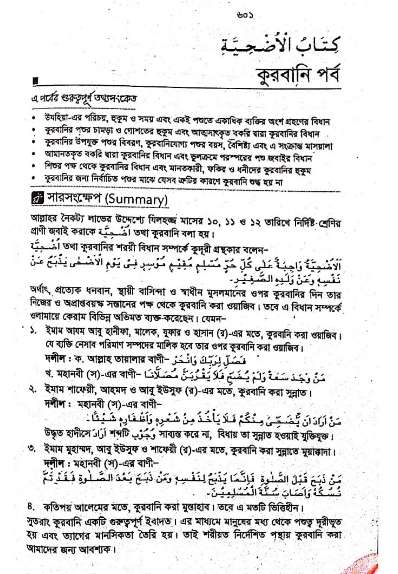 ৬০১
كِتَابُ الْأُضْحِيَّةِ
কুরবানি পর্ব
এ পর্বের গুরুত্বপূর্ণ তথ্যসংকেত
• উযহিয়া-এর পরিচয়, হুকুম ও সময় এবং একই পশুতে একাধিক ব্যক্তির অংশ গ্রহণের বিধান
• কুরবানির পশুর চামড়া ও গোশতের হুকুম এবং আত্মসাৎকৃত বকরি দ্বারা কুরবানির বিধান
• কুরবানির উপযুক্ত পশুর বিবরণ, কুরবানিযোগ্য পশুর বয়স, বৈশিষ্ট্য এবং এ সংক্রান্ত মাসয়ালা
• আমানতকৃত বকরি দ্বারা কুরবানির বিধান এবং ভুলক্রমে পরস্পরের পশু জবাইর বিধান
• শিশুর পক্ষ থেকে কুরবানির বিধান এবং মানতকারী, ফকির ও ধনীদের কুরবানির হুকুম
• কুরবানির জন্য নির্বাচিত পশুর মাঝে যেসব ত্রুটির কারণে কুরবানি শুদ্ধ হয় না
সারসংক্ষেপ (Summary)
আল্লাহর নৈকট্য লাভের উদ্দেশ্যে যিলহজ্ব মাসের ১০, ১১ ও ১২ তারিখে নির্দিষ্ট-শ্রেণির
প্রাণী জবাই করাকে أُضْحِيَّة তথা কুরবানি বলা হয়।
أُضْحِيَّة তথা কুরবানির শরয়ী বিধান সম্পর্কে কুদূরী গ্রন্থকার বলেন–
اَلْأُضْحِيَّةُ وَاجِبَةٌ عَلَى كُلِّ حُرٍّ مُسْلِمٍ مُقِيْمٍ مُوْسِرٍ فِىْ يَوْمِ الْأَضْحٰى يَذْبَحُ عَنْ
نَفْسِهِ وَعَنْ وَلَدِهِ الصَّغِيْرِ.
অর্থাৎ, প্রত্যেক ধনবান, স্থায়ী বাসিন্দা ও স্বাধীন মুসলমানের ওপর কুরবানির দিন তার
নিজের ও অপ্রাপ্তবয়স্ক সন্তানের পক্ষ থেকে কুরবানি করা ওয়াজিব। তবে এ বিধান সম্পর্কে
ওলামায়ে কেরাম বিভিন্ন অভিমত ব্যক্ত-করেছেন। যেমন–
১. ইমাম আযম আবু হানীফা, মালেক, যুফার ও হাসান (র)-এর মতে, কুরবানি করা ওয়াজিব।
যে ব্যক্তি নেসাব পরিমাণ সম্পদের মালিক হবে তার ওপর কুরবানী করা ওয়াজিব।
দলীল : ক. আল্লাহ তায়ালার বাণী– فَصَلِّ لِرَبِّكَ وَانْحَرْ
খ. মহানবী (স)-এর বাণী– مَنْ وَجَدَ سَعَةً وَلَمْ يُضَحِّ فَلَا يَقْرَبَنَّ مُصَلَّانَا
২. ইমাম শাফেয়ী, আহমদ ও আবু ইউসুফ (র)-এর মতে, কুরবানি করা সুন্নাত।
দলীল : মহানবী (স)-এর বাণী–
مَنْ أَرَادَ أَنْ يُّضَحِّىَ مِنْكُمْ فَلَا يَأْخُذْ مِنْ شَعْرِهِ وَأَظْفَارِهِ شَيْئًا.
উদ্ধৃত হাদীসে أَرَادَ শব্দটি وُجُوْب সাব্যস্ত করে না, বিধায় তা সুন্নাত হওয়াই যুক্তিযুক্ত।
৩. ইমাম মুহাম্মদ, আবু ইউসুফ ও শাফেয়ী (র)-এর মতে, কুরবানি করা সুন্নাতে মুয়াক্কাদা।
দলীল : মহানবী (স)-এর বাণী–
مَنْ ذَبَحَ قَبْلَ الصَّلٰوةِ فَإِنَّمَا يَذْبَحُ لِنَفْسِهِ وَمَنْ ذَبَحَ بَعْدَ الصَّلٰوةِ فَقَدْ تَمَّ
نُسُكُهُ وَأَصَابَ سُنَّةَ الْمُسْلِمِيْنَ.
৪. কতিপয় আলেমের মতে, কুরবানি করা মুস্তাহাব। তবে এ মতটি ভিত্তিহীন।
সুতরাং কুরবানি একটি গুরুত্বপূর্ণ ইবাদত। এর মাধ্যমে মানুষের মধ্য থেকে পশুত্ব দূরীভূত
হয় এবং ত্যাগের মানসিকতা তৈরি হয়। তাই শরীয়ত নির্দেশিত পন্থায় কুরবানি করা
আমাদের জন্য আবশ্যক।